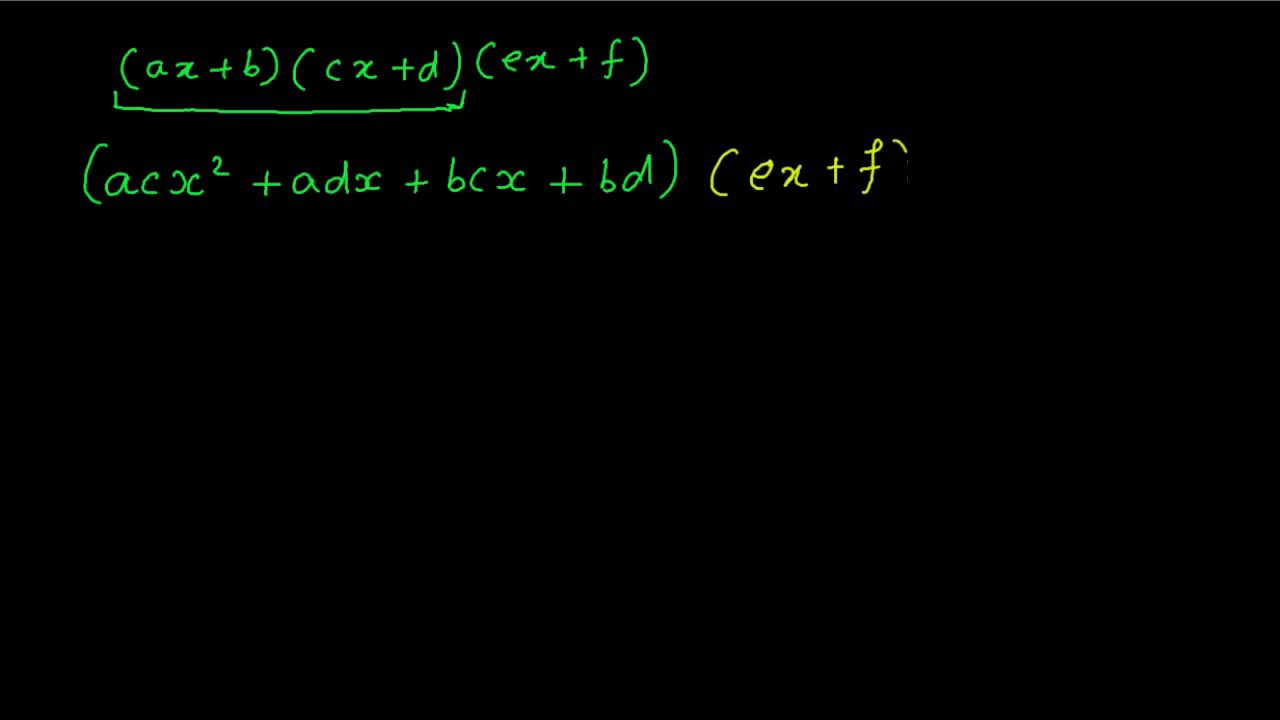 (ax+b)(cx+d)(ex+f)
(acx² + adx + bcx + bd) (ex + f)